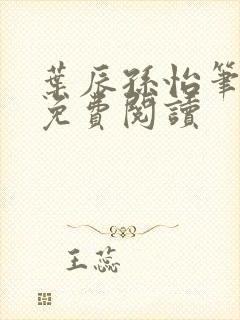 葉辰孫怡筆
免費閱讀
王蕊